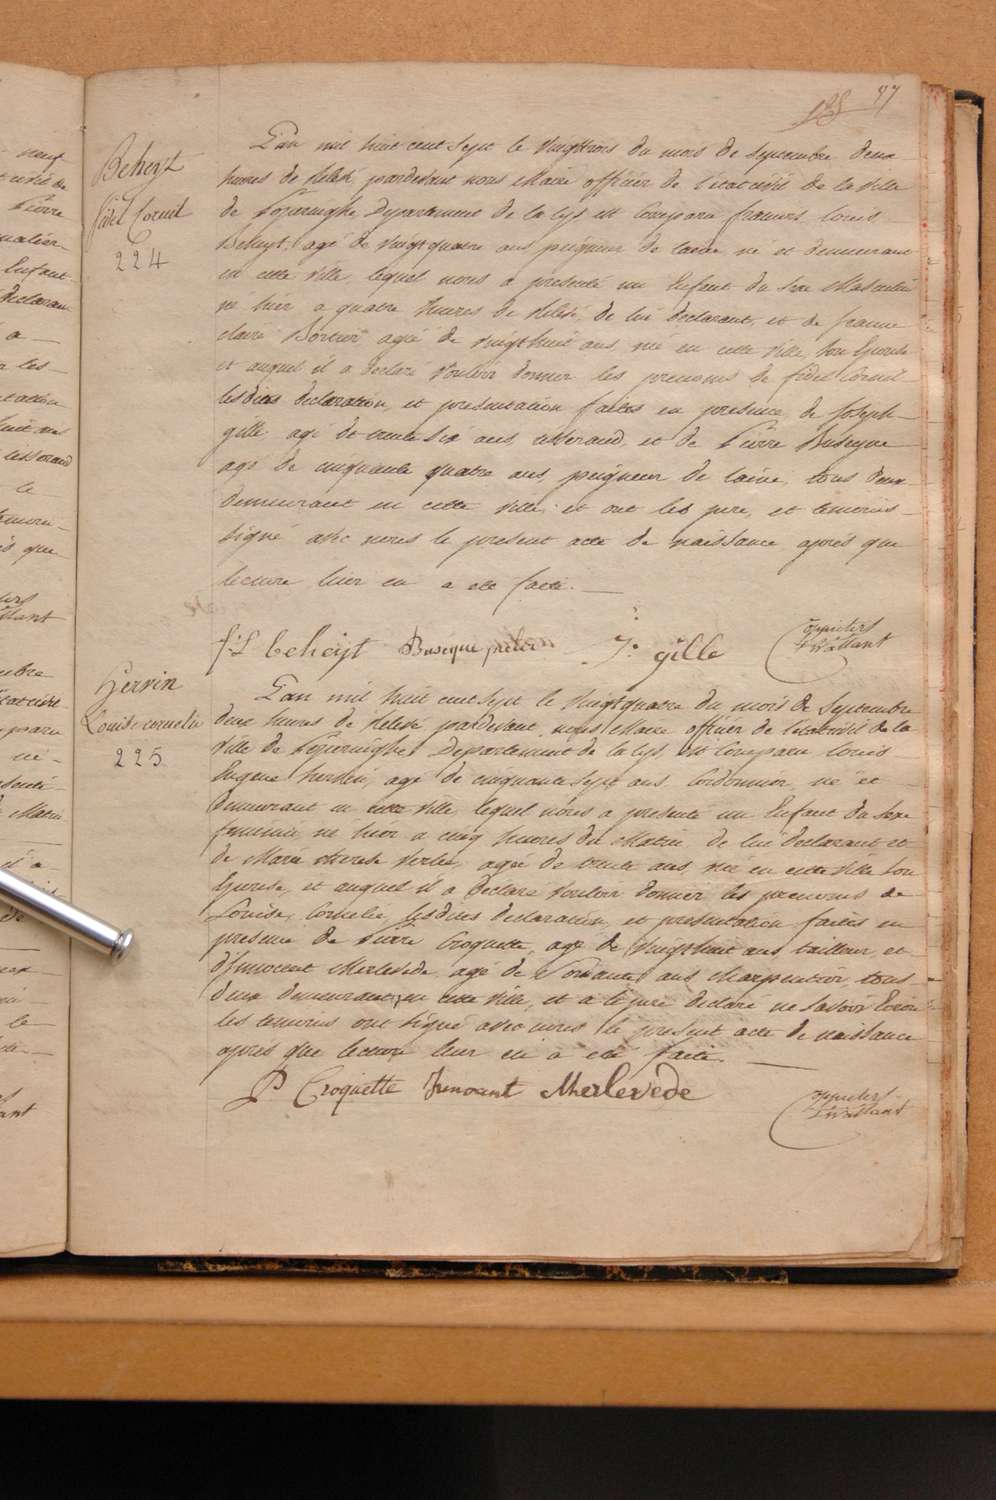 97
Beheyt
fidel Corneil
224
L'an mil huit cent sept le vingttrois du mois de Septembre deux
heures de relevé pardevant nous Maire officier de l'etat civil de la ville
de Poperinghe Departement de la Lys est Comparu francois Louis
Beheyt, agé de vingt quatre ans peigneur de laine né et demeurant
en cette ville, lequel nous a presenté un Enfant du Sexe Masculin
né hier a quatre heures de relevé de lui declarant, et de
claire agée de vingthuit ans, née en cette ville, Son Epouse
et auquel il a declaré vouloir donner les prenoms de fidel Corneil
lesdites declaration, et presentation faites en presence de Joseph
gille agé de trente six ans tisserand, et de Pierre Buseyne
agé de cinquante quatre ans, peigneur de laine, tous deux
demeurant en cette ville, et ont les pere, et temoins
signé avec nous le present acte de naissance après que
lecture leur en a eté faite.
f: L beheijt Pieter J: gille
L: Wattant
Hervin
Louise cornelie
225
L'an mil huit cent sept le vingtquatre du mois de Septembre
deux heures de relevé pardevant nous Maire officier de l'etat civil de la
ville de Poperinghe Departement de la Lys, est Comparu Louis
Eugene hervin, agé de cinquante sept ans Cordonnier, né et
demeurant en cette ville, lequel nous a presenté un Enfant du Sexe
feminin né hier a cinq heures du Matin de lui declarant et
de Marie therese agée de trente ans, née en cette ville Son
Epouse, et auquel il a declaré vouloir donner les prenoms de
Louise, Cornelie, lesdites declaration, et presentation faites en
presence de Pierre Croquette, agé de vingthuit ans tailleur, et
d'Innocent Merlevede agé de Soixante ans charpentier, tous
deux demeurant, en cette ville, et a le pere declaré ne Savoir Ecrire
les temoins ont signé avec nous le present acte de naissance
après que lecture leur en a eté faite.
P Croquette Innocent Merlevede
L: Wattant